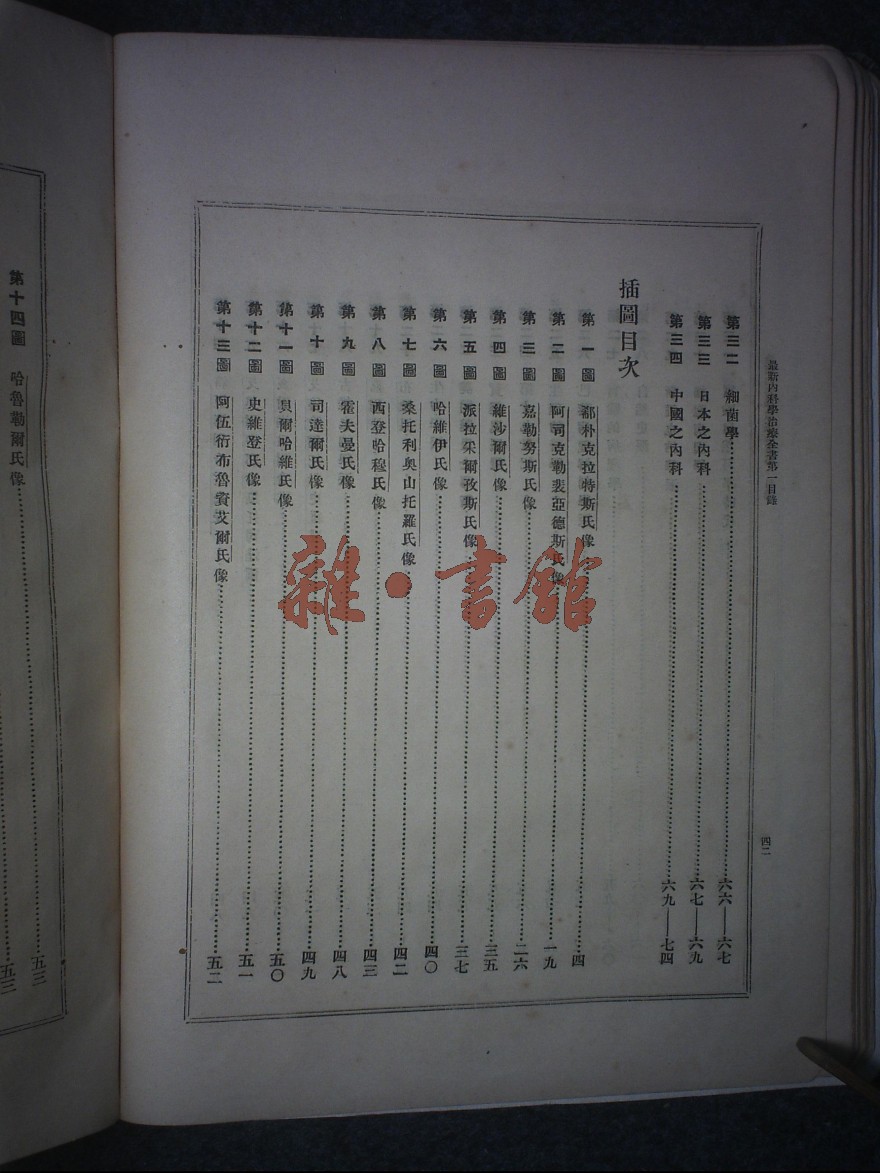 最新內科學治療全書第一目錄
四二
第三二　細菌學⋯⋯六六——六七
第三三　日本之內科⋯⋯六七——六九
第三四　中國之內科⋯⋯六九——七四
插圖目次
第一圖　郗朴克拉特斯氏像⋯⋯四
第二圖　阿司克勒裴亞德斯氏像⋯⋯一九
第三圖　嘉勒努斯氏像⋯⋯二六
第四圖　維沙爾氏像⋯⋯三五
第五圖　派拉采爾孜斯氏像⋯⋯三七
第六圖　哈維伊氏像⋯⋯四〇
第七圖　桑托利奧山托羅氏像⋯⋯四二
第八圖　西登哈穆氏像⋯⋯四三
第九圖　霍夫曼氏像⋯⋯四八
第十圖　司達爾氏像⋯⋯四九
第十一圖　貝爾哈維氏像⋯⋯五〇
第十二圖　史維登氏像⋯⋯五一
第十三圖　阿伍衍布魯賁艾爾氏像⋯⋯五二
第十四圖　哈魯勒爾氏像⋯⋯五三
五三
雜·書館